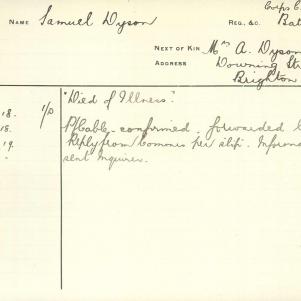 Corps C
NAME Samuel Dyson REG., &C. Bat
NEXT OF KIN Mrs A. Dyson
ADDRESS Downing Str
Brighton
"Died of Illness".
18. P/Cabb. confirmed. forwarded
18. Reply from Commns per slip. Informa
19. sent Inquirer.